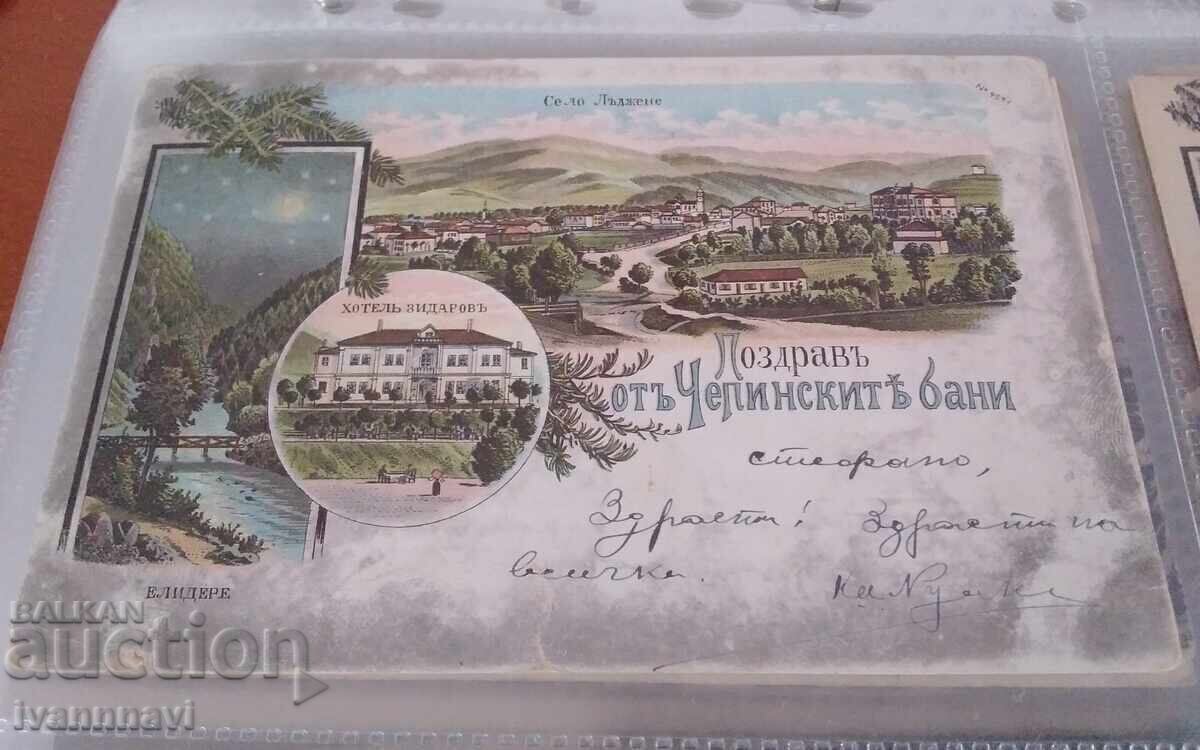 Село Лъджене
ХОТЕЛЬ ЗИДАРОВЪ
Поздравъ
отъ Чепинскитѣ бани
стефано,
Здрасти! Здрасти на
всички.
ЕЛИДЕРЕ
BALKAN
auction
ivannnavi